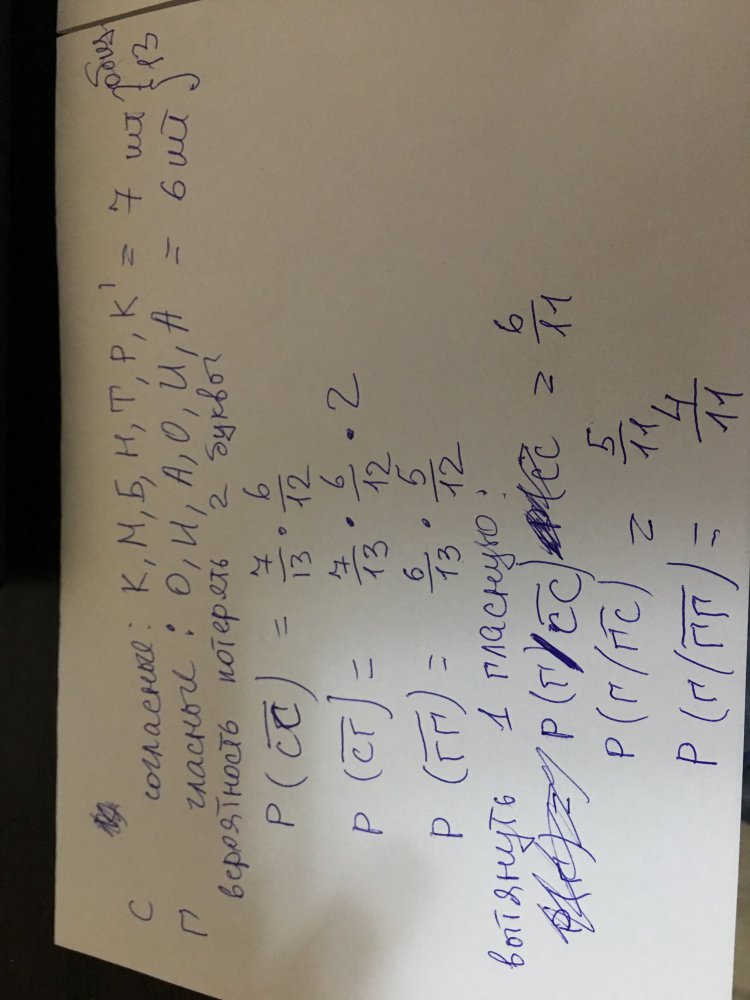 С согласные: К, М, Б, Н, Т, Р, К' = 7 шт } 13
Г гласные: О, И, А, О, И, А = 6 шт
вероятность потерять 2 буквы
P(C̅C̅) = 7/13 · 6/12
P(C̅Г̅) = 7/13 · 6/12 · 2
P(Г̅Г̅) = 6/13 · 5/12
вытянуть 1 гласную:
P(Г/C̅C̅) = 6/11
P(Г/Г̅C̅) = 5/11
P(Г/Г̅Г̅) = 4/11